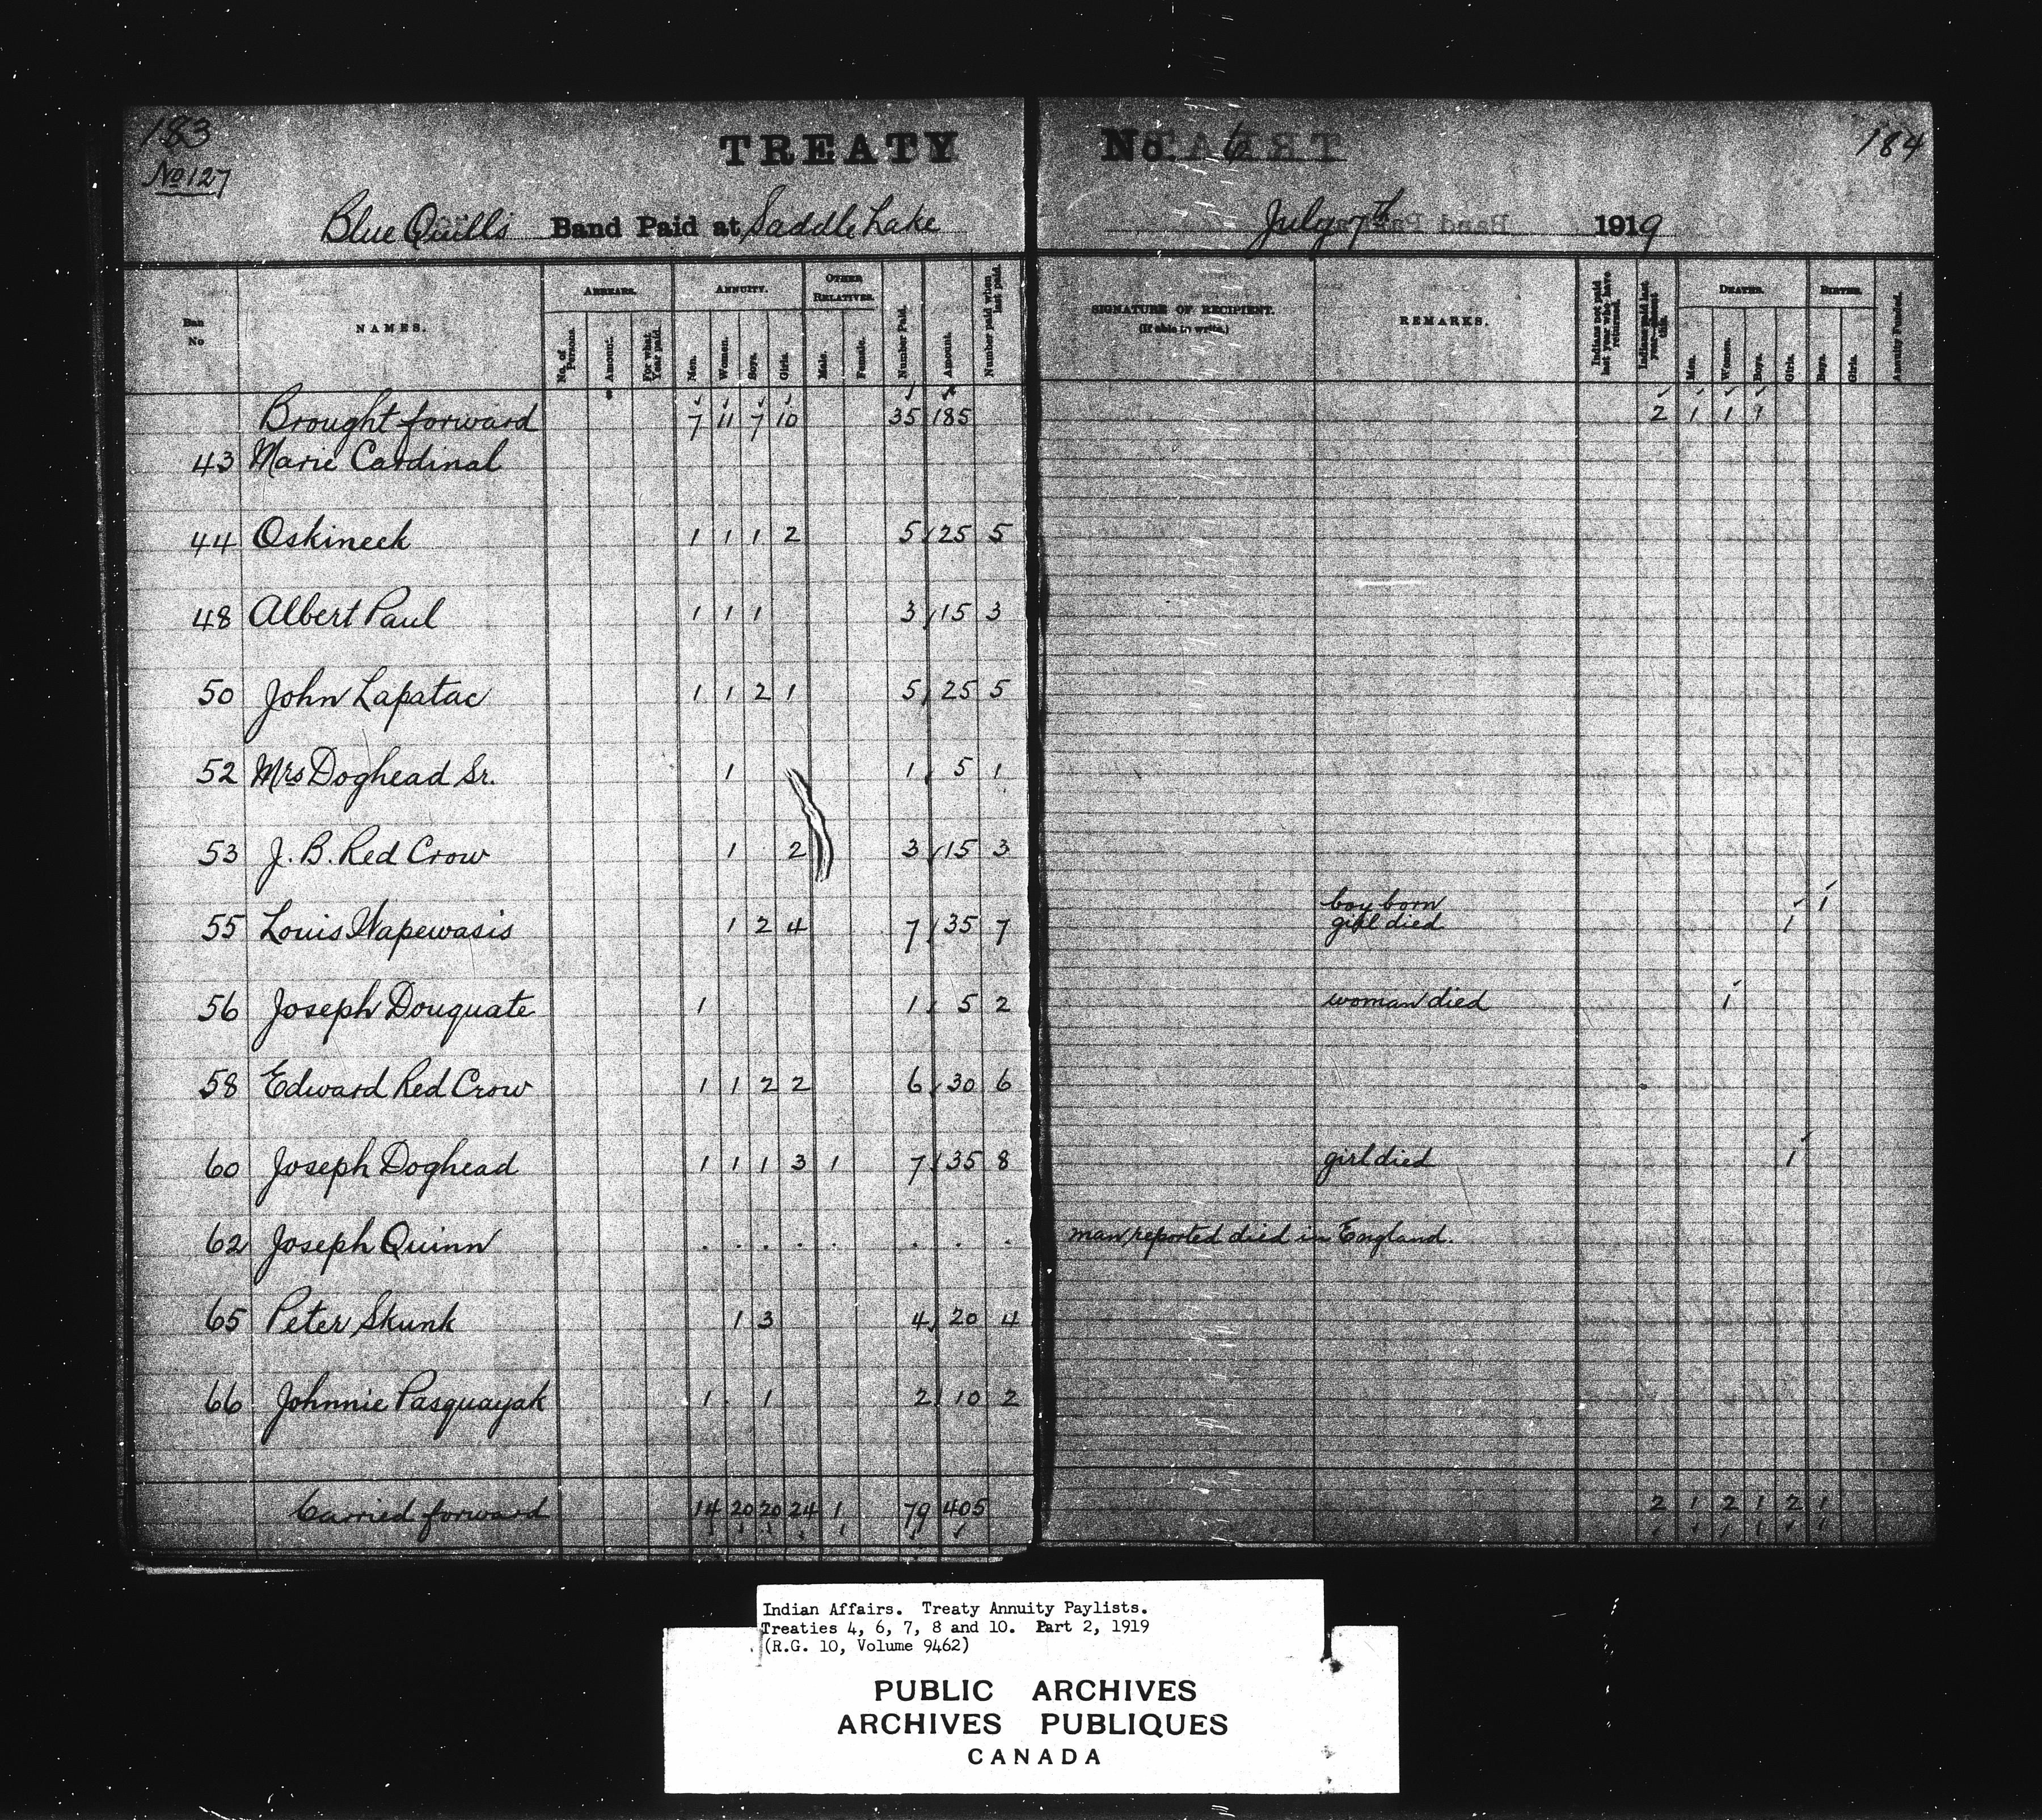 183
No 127
TREATY No. 6
184
Blue Quill's Band Paid at Saddle Lake July 7th 1919
Ban No
NAMES.
ARREARS.
No. of Persons.
Amount.
For what Year paid.
ANNUITY.
Men.
Women.
Boys.
Girls.
OTHER RELATIVES.
Male.
Female.
Number Paid.
Amount.
Number paid when last paid.
SIGNATURE OF RECIPIENT.
(If able to write.)
REMARKS.
Indians not paid last year who have returned.
Indians paid last year absent this.
DEATHS.
Men.
Women.
Boys.
Girls.
BIRTHS.
Boys.
Girls.
Annuity Funded.
Brought forward 7 11 7 10 35 185 2 1 1 1
43 Marie Cardinal
44 Oskineek 1 1 1 2 5 25 5
48 Albert Paul 1 1 1 3 15 3
50 John Lapatac 1 1 2 1 5 25 5
52 Mrs Doghead Sr. 1 1 5 1
53 J. B. Red Crow 1 2 3 15 3
boy born 1
55 Louis Wapewasis 1 2 4 7 35 7 girl died 1
56 Joseph Douquate 1 1 5 2 woman died 1
58 Edward Red Crow 1 1 2 2 6 30 6
60 Joseph Doghead 1 1 1 3 1 7 35 8 girl died 1
62 Joseph Quinn . . . . . . . . man reported died in England.
65 Peter Skunk 1 3 4 20 4
66 Johnnie Pasquayak 1 . 1 2 10 2
Carried forward 14 20 20 24 1 79 405 2 1 2 1 2 1
Indian Affairs. Treaty Annuity Paylists.
Treaties 4, 6, 7, 8 and 10. Part 2, 1919
(R.G. 10, Volume 9462)
PUBLIC ARCHIVES
ARCHIVES PUBLIQUES
CANADA